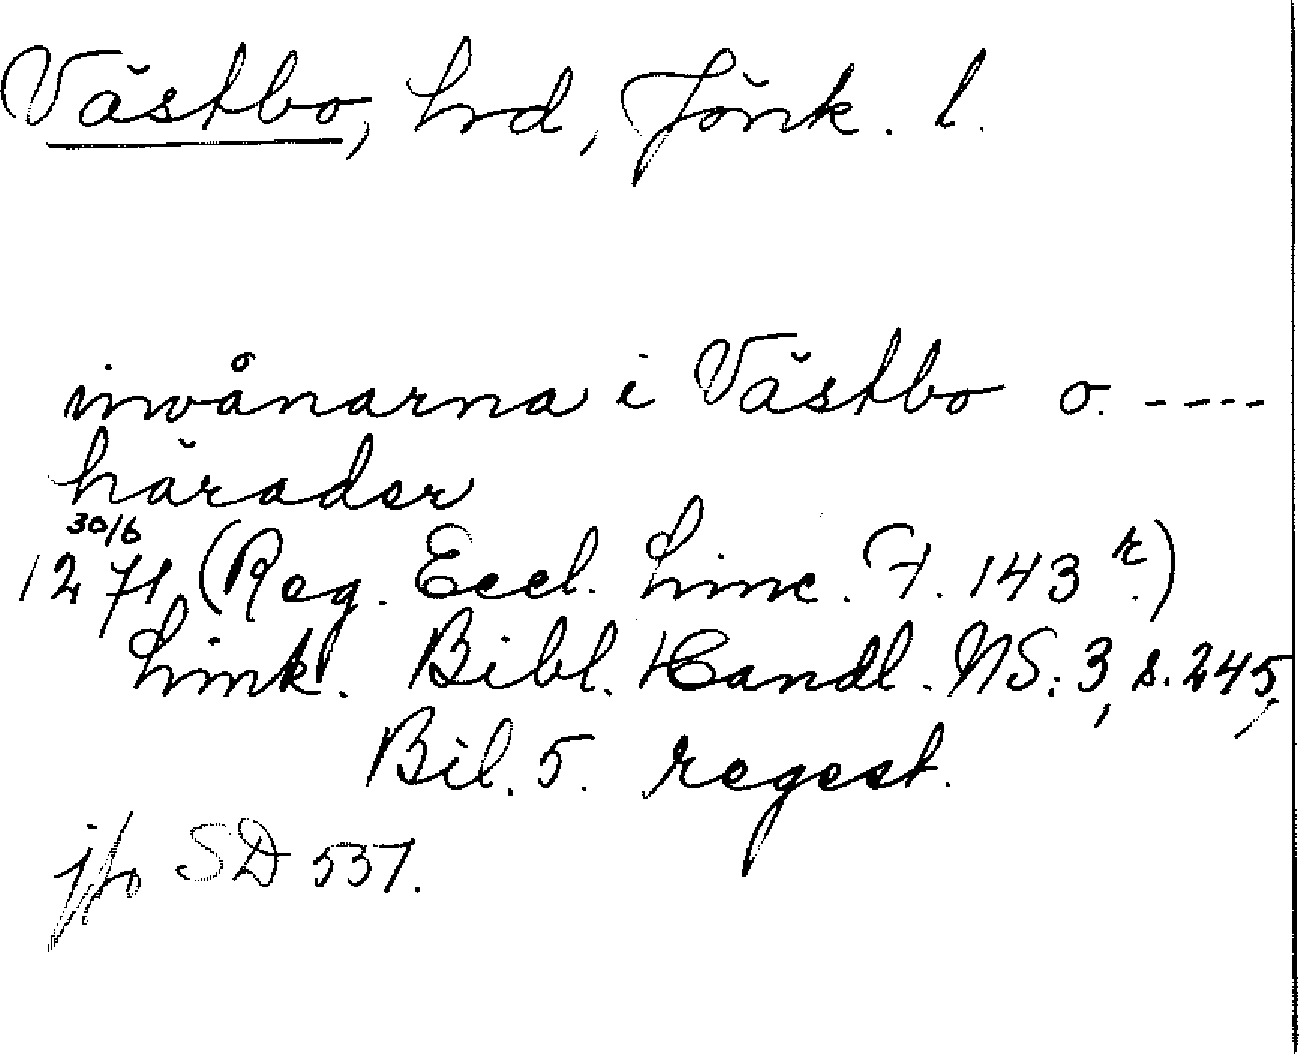 Västbo, hrd, Jönk. l.
invånarna i Västbo o. ----
härader
30/6
1271 (Reg. Eccl. Linc. F. 143 r.)
Link. Bibl. Handl. NS: 3, s. 245,
Bil. 5. regest.
jfr SD 537.